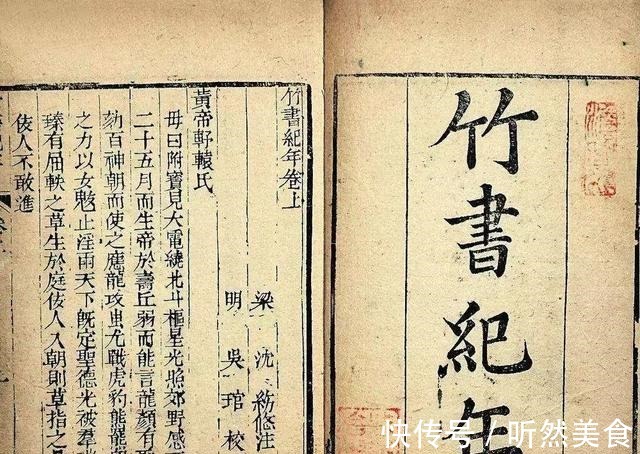 竹書紀年
竹書紀年卷上
梁 沈約修注
明 吳琯校
黃帝軒轅氏
母曰附寶見大電繞北斗樞星光照郊野感
二十五月而生帝於壽丘弱而能言龍顏有
劾百神朝而使之應龍攻蚩尤戰虎豹熊羆
之力以女魃止淫雨天下既定聖德光被羣
臻有屈軼之草生於庭佞人入朝則草指之
佞人不敢進
快传号／听然美食